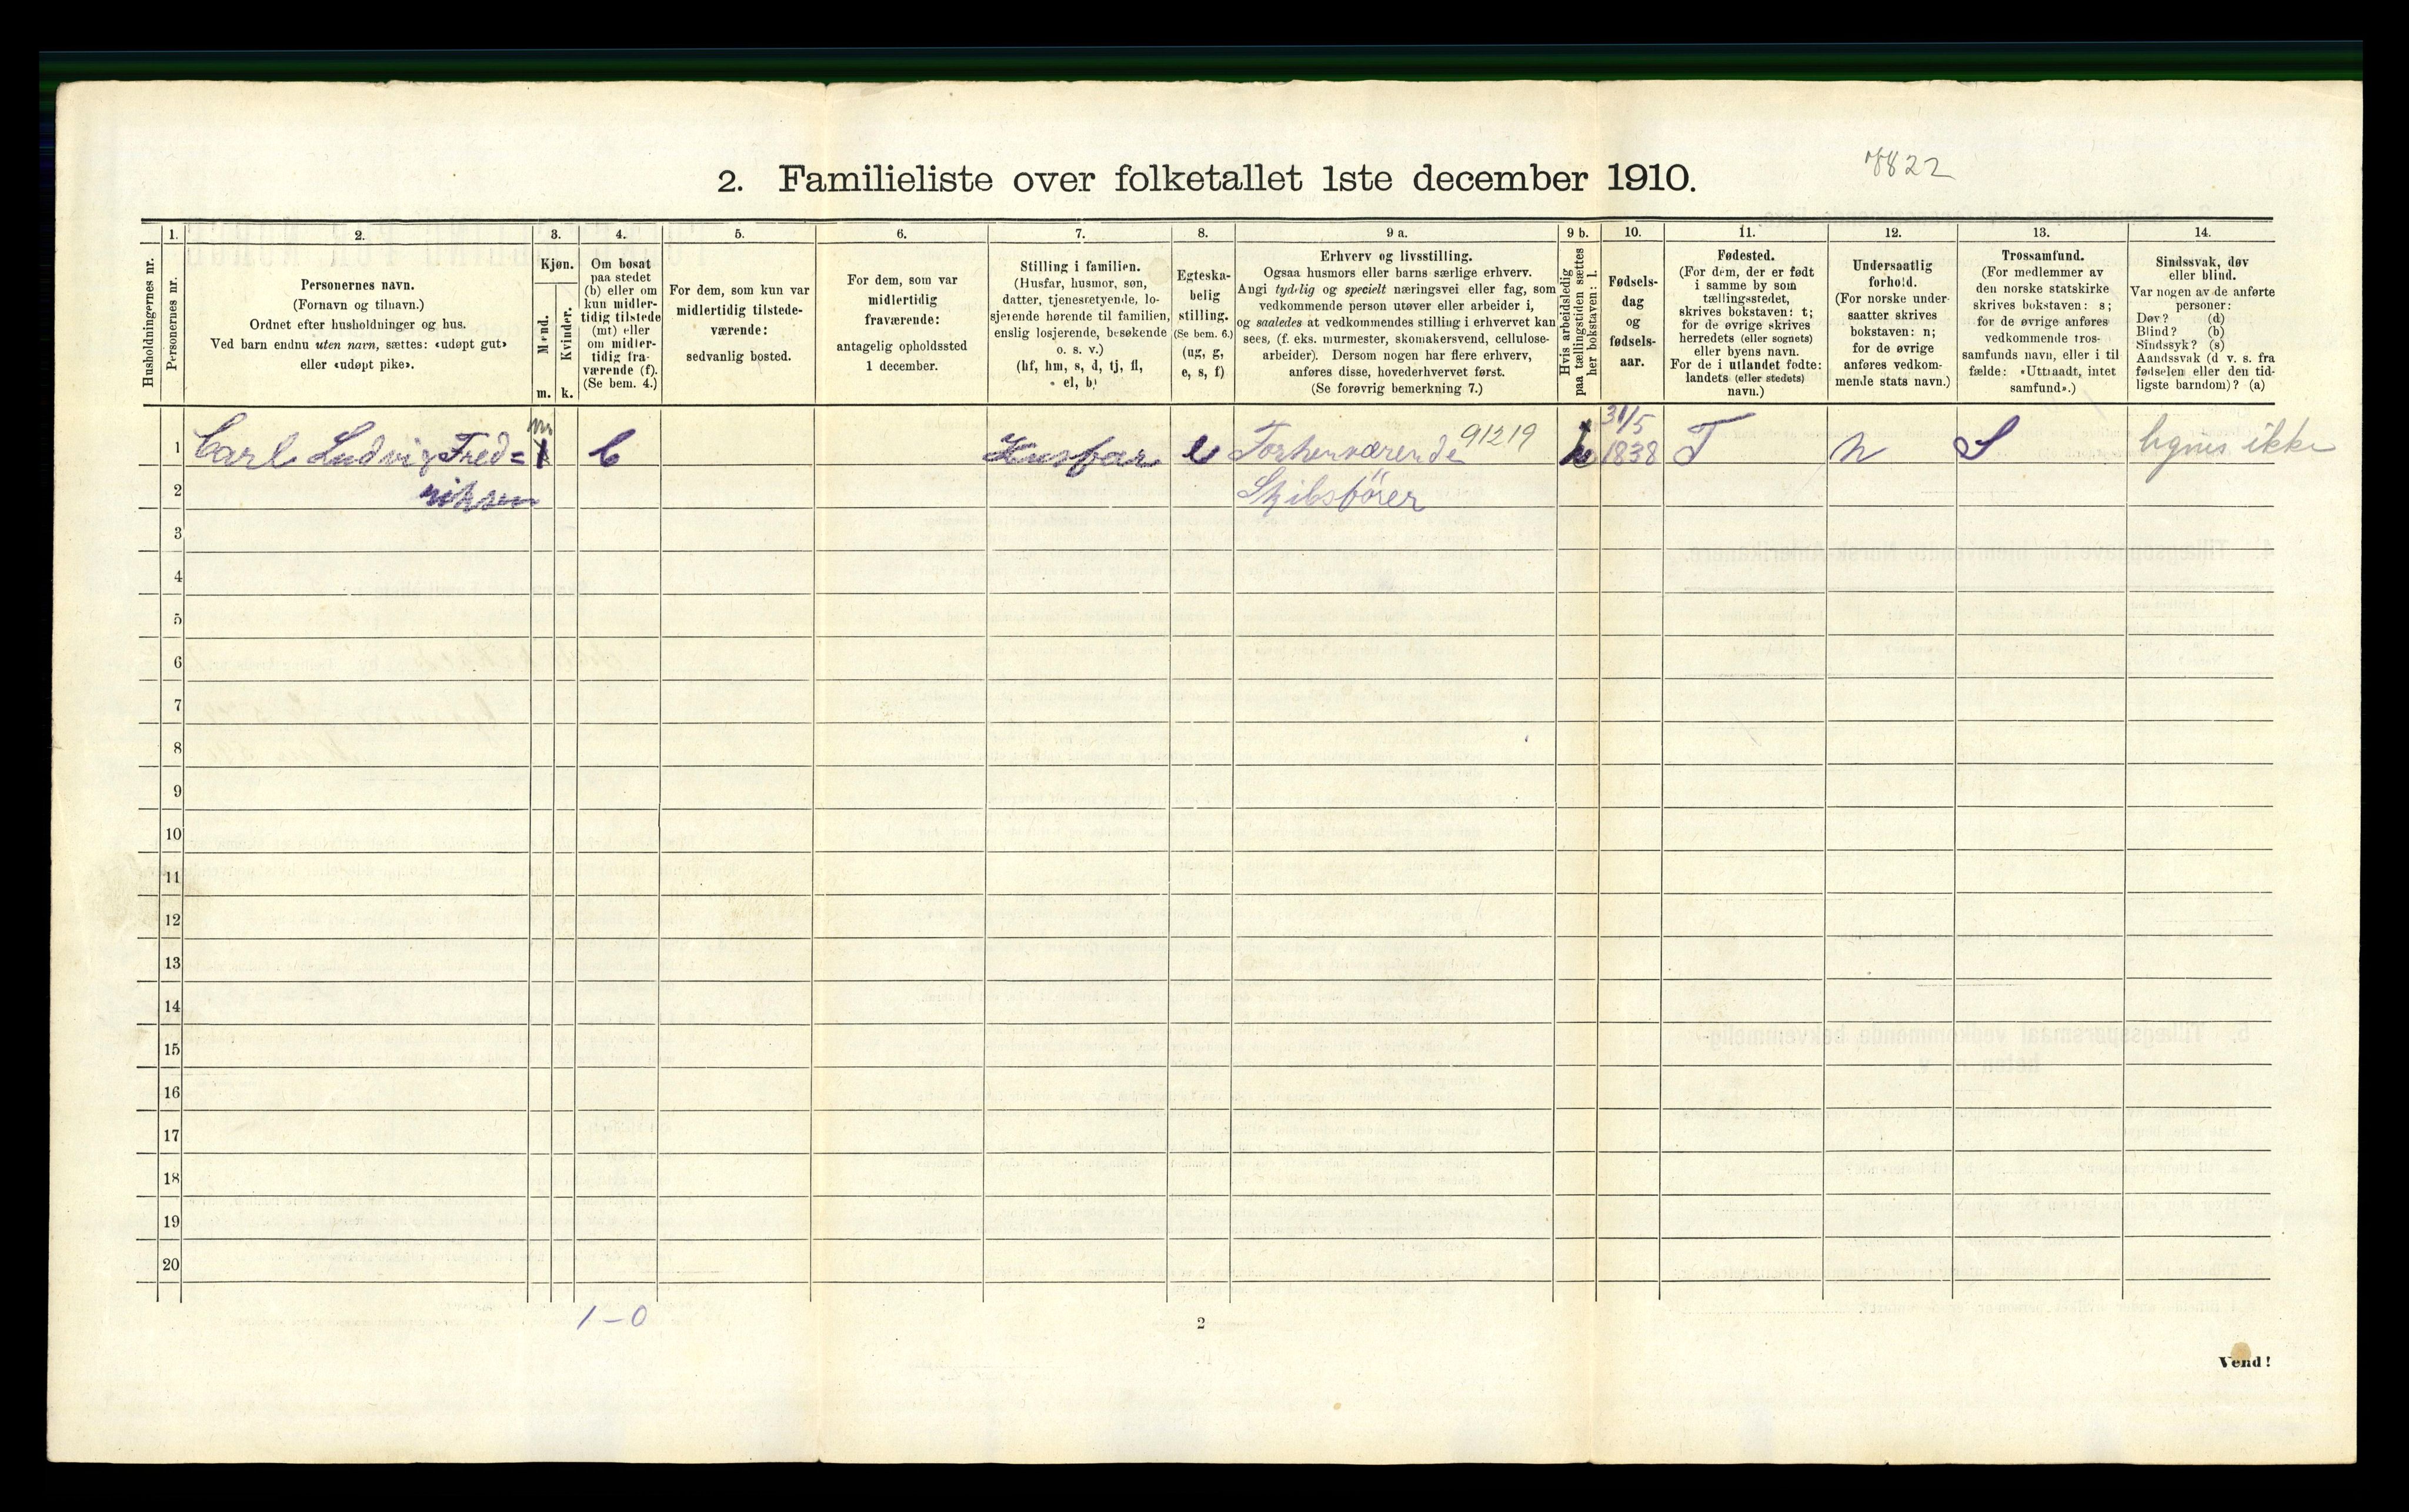 7822
2. Familieliste over folketallet 1ste december 1910.
Husholdningernes nr.
1.
Personernes nr.
2.
Personernes navn.
(Fornavn og tilnavn.)
Ordnet efter husholdninger og hus.
Ved barn endnu uten navn, sættes: «udøpt gut»
eller «udøpt pike».
3.
Kjøn.
Mænd.
Kvinder.
m. k.
4.
Om bosat
paa stedet
(b) eller om
kun midler-
tidig tilstede
(mt) eller
om midler-
tidig fra-
værende (f).
(Se bem. 4.)
5.
For dem, som kun var
midlertidig tilstede-
værende:
sedvanlig bosted.
6.
For dem, som var
midlertidig
fraværende:
antagelig opholdssted
1 december.
7.
Stilling i familien.
(Husfar, husmor, søn,
datter, tjenestetyende, lo-
sjerende hørende til familien,
enslig losjerende, besøkende
o. s. v.)
(hf, hm, s, d, tj, fl,
el, b)
8.
Egteska-
belig
stilling.
(Se bem. 6.)
(ug, g,
e, s, f)
9 a.
Erhverv og livsstilling.
Ogsaa husmors eller barns særlige erhverv.
Angi tydelig og specielt næringsvei eller fag, som
vedkommende person utøver eller arbeider i,
og saaledes at vedkommendes stilling i erhvervet kan
sees, (f. eks. murmester, skomakersvend, cellulose-
arbeider). Dersom nogen har flere erhverv,
anføres disse, hovederhvervet først.
(Se forøvrig bemerkning 7.)
9 b.
Hvis arbeidsledig
paa tællingstiden sættes
her bokstaven: l.
10.
Fødsels-
dag
og
fødsels-
aar.
11.
Fødested.
(For dem, der er født
i samme by som
tællingsstedet,
skrives bokstaven: t;
for de øvrige skrives
herredets (eller sognets)
eller byens navn.
For de i utlandet fødte:
landets (eller stedets)
navn.)
12.
Undersaatlig
forhold.
(For norske under-
saatter skrives
bokstaven: n;
for de øvrige
anføres vedkom-
mende stats navn.)
13.
Trossamfund.
(For medlemmer av
den norske statskirke
skrives bokstaven: s;
for de øvrige anføres
vedkommende tros-
samfunds navn, eller i til
fælde: «Uttraadt, intet
samfund».)
14.
Sindssvak, døv
eller blind.
Var nogen av de anførte
personer:
Døv? (d)
Blind? (b)
Sindssyk? (s)
Aandssvak (d v. s. fra
fødselen eller den tid-
ligste barndom)? (a)
1 Carl Ludvig Fred= 1 b Husfar e Forhenværende 91219 31/5 1838 T n S
2 riksen Skibsfører
3
4
5
6
7
8
9
10
11
12
13
14
15
16
17
18
19
20
1 – 0
2
Vend!